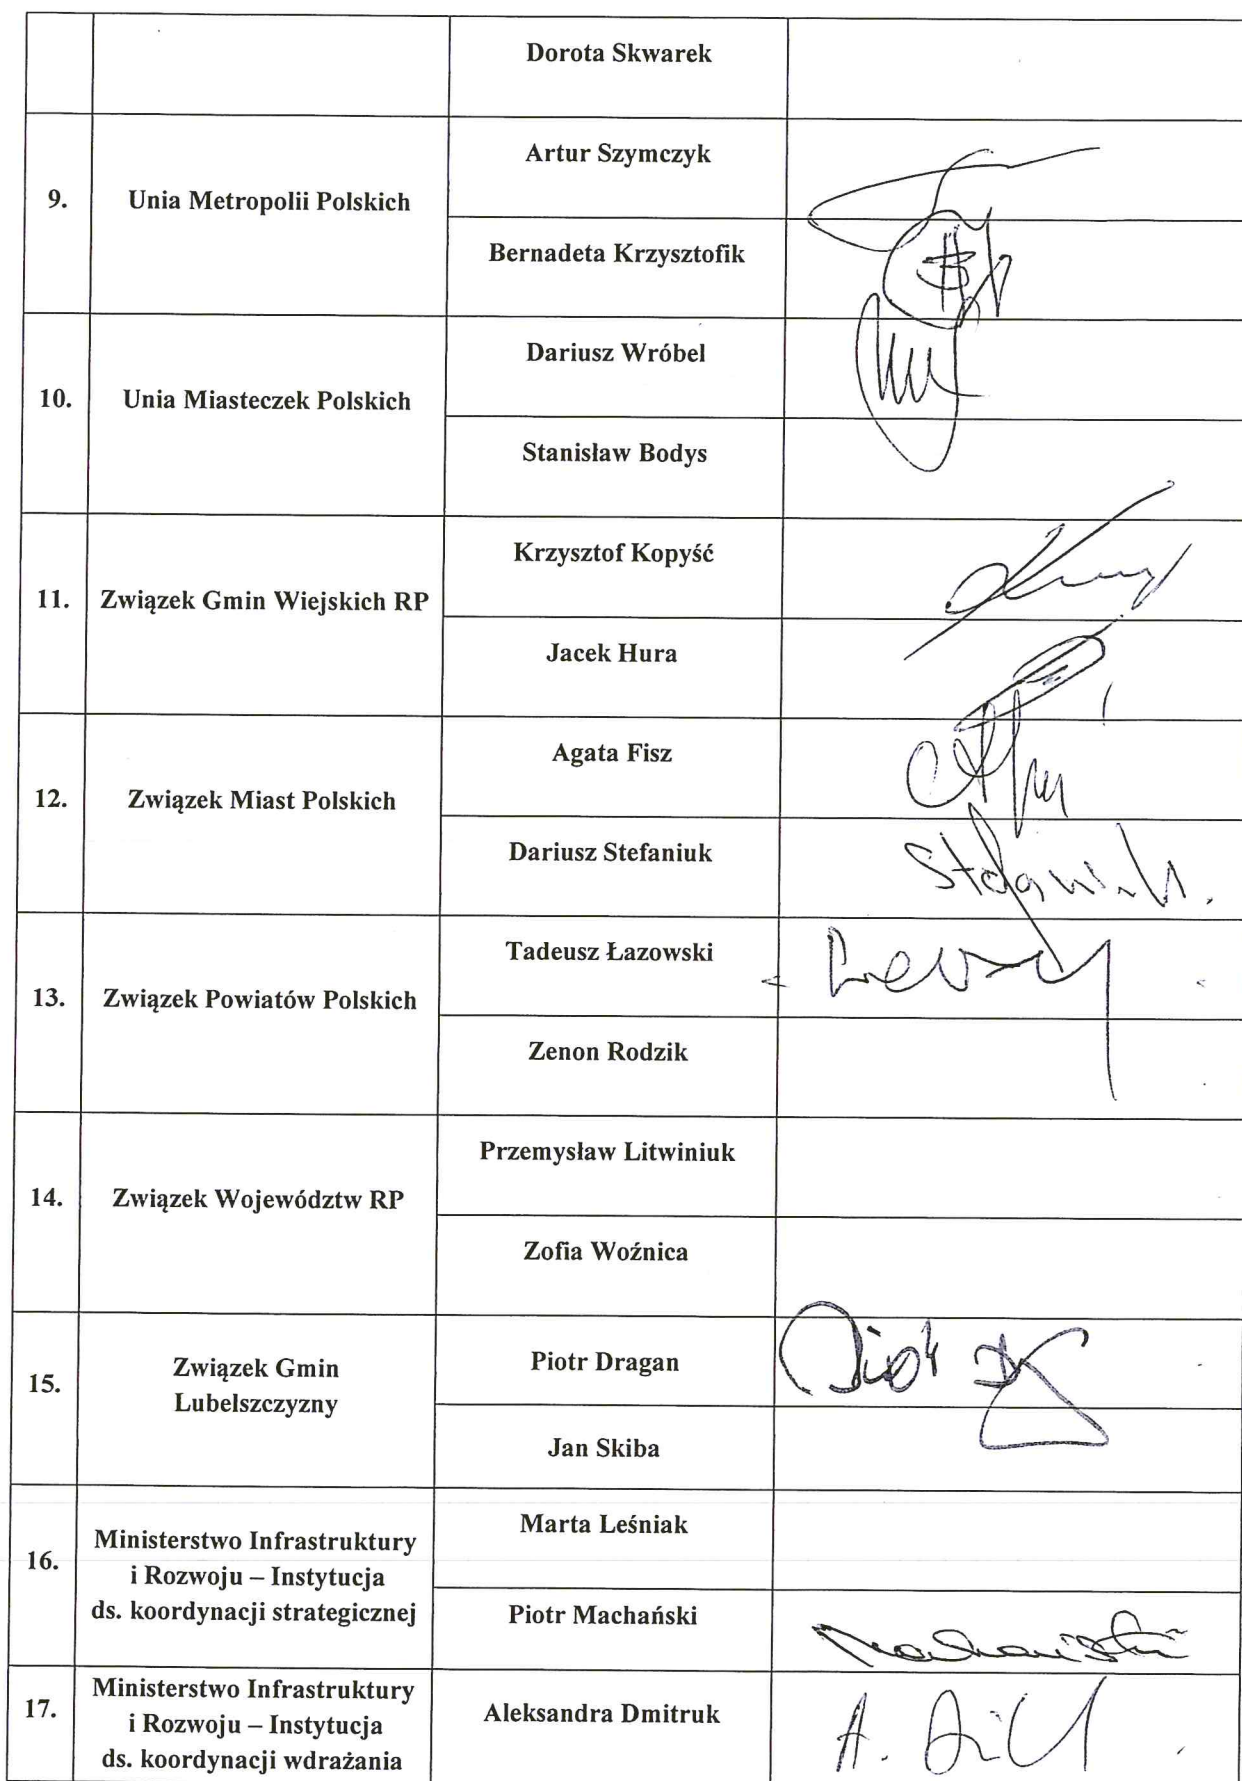 Dorota Skwarek
9.
Unia Metropolii Polskich
Artur Szymczyk
Bernadeta Krzysztofik
10.
Unia Miasteczek Polskich
Dariusz Wróbel
Stanisław Bodys
11.
Związek Gmin Wiejskich RP
Krzysztof Kopyść
Jacek Hura
12.
Związek Miast Polskich
Agata Fisz
Dariusz Stefaniuk
13.
Związek Powiatów Polskich
Tadeusz Łazowski
Zenon Rodzik
14.
Związek Województw RP
Przemysław Litwiniuk
Zofia Woźnica
15.
Związek Gmin
Lubelszczyzny
Piotr Dragan
Jan Skiba
16.
Ministerstwo Infrastruktury
i Rozwoju – Instytucja
ds. koordynacji strategicznej
Marta Leśniak
Piotr Machański
17.
Ministerstwo Infrastruktury
i Rozwoju – Instytucja
ds. koordynacji wdrażania
Aleksandra Dmitruk